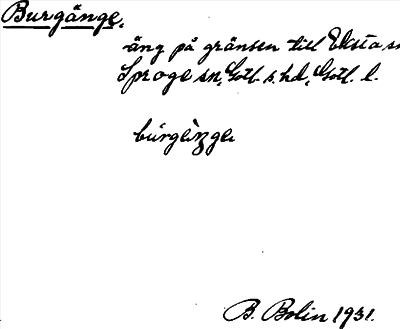 Burgänge.
äng på gränsen till Eksta sn
Sproge sn, Gotl. s. hd, Gotl. l.
bùrgèŋge
B. Bolin 1931.